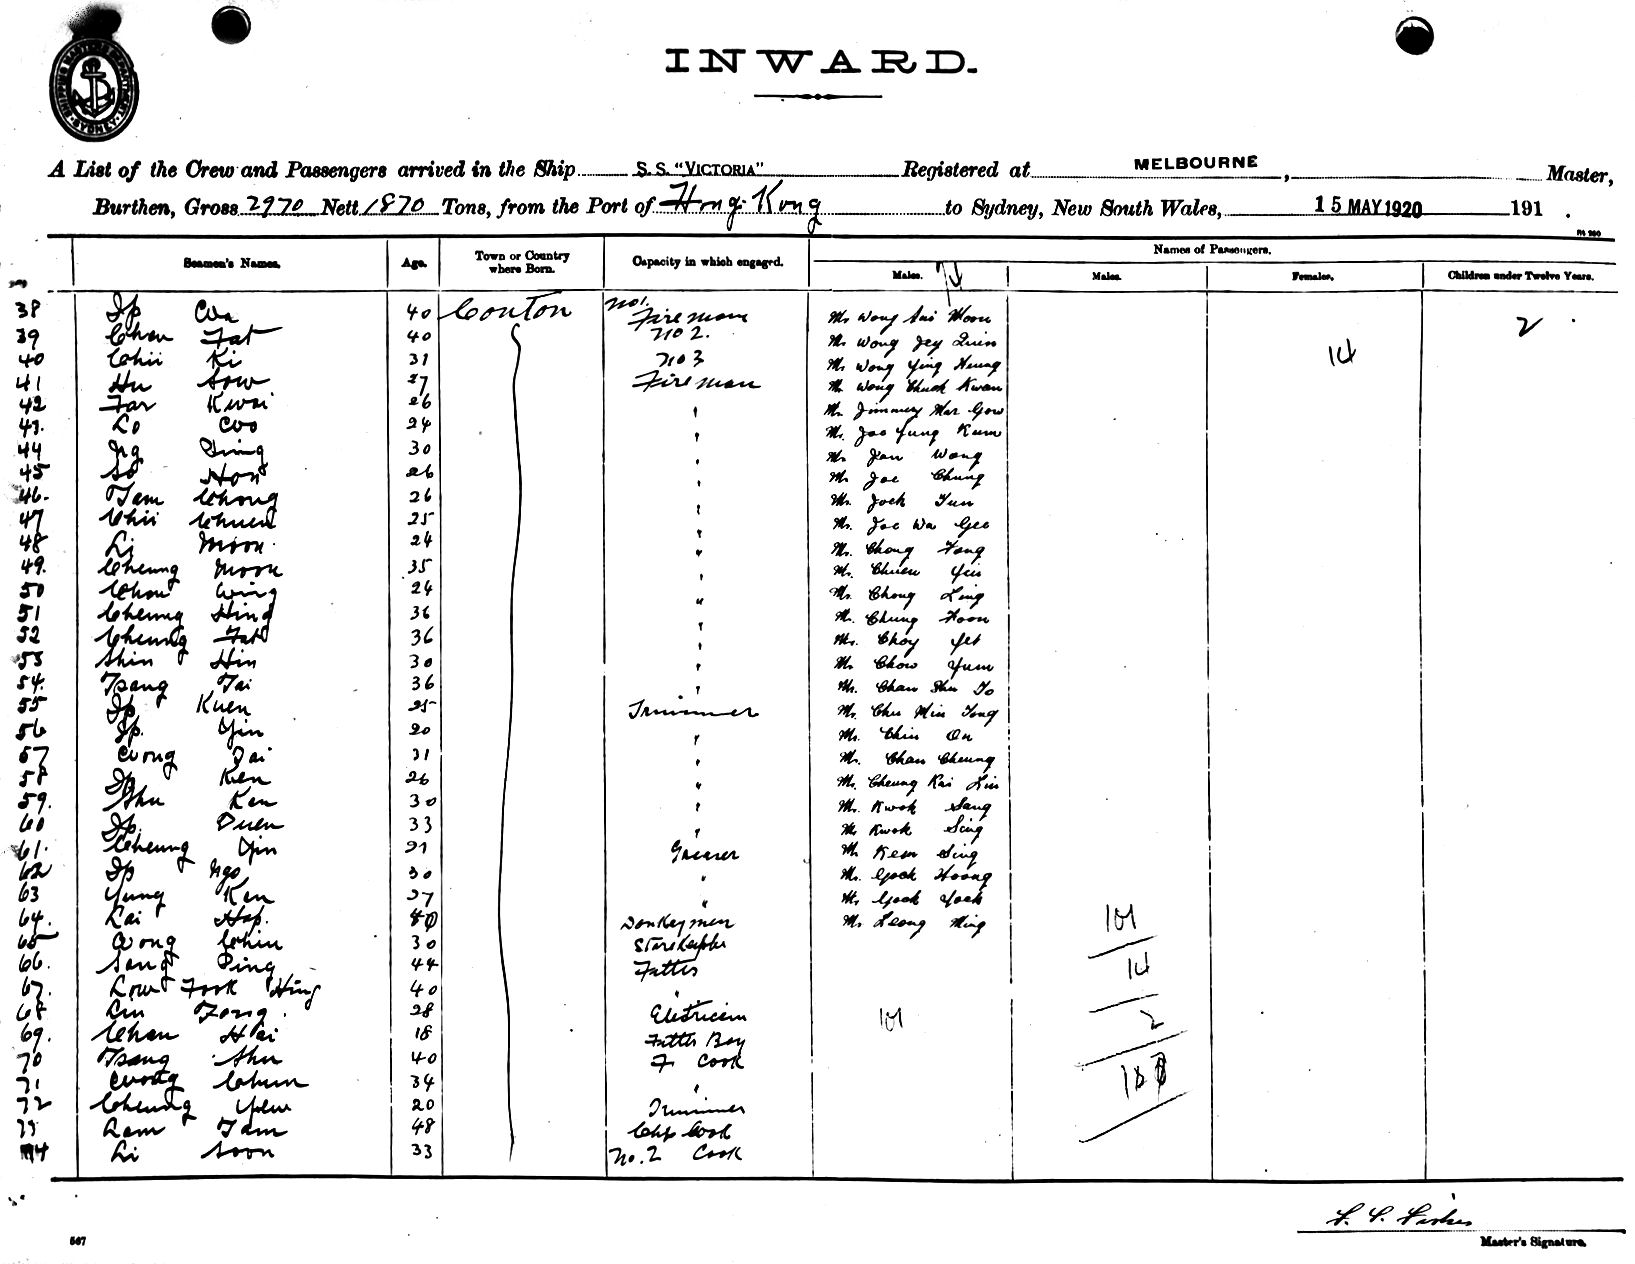 SHIPPING MASTER'S DEPARTMENT SYDNEY
INWARD.
A List of the Crew and Passengers arrived in the Ship S.S. "VICTORIA" Registered at MELBOURNE, Master,
Burthen, Gross 2970 Nett 1870 Tons, from the Port of Hong Kong to Sydney, New South Wales, 15 MAY 1920 191 .
Names of Passengers.
Seamen's Names. Age. Town or Country where Born. Capacity in which engaged. Males. Males. Females. Children under Twelve Years.
38 Ip Wa 40 Conton No 1. Fireman Mr Wong Sui Moon 2
39 Chan Fat 40 No 2. Mr Wong Jey Quin
40 Chii Ki 31 No 3 Mr Wong Ying Heung 14
41 Hu Sow 27 Fireman Mr Wong Chuck Kwan
42 Far Kwai 26 " Mr. Jimmey Mar Gow
43. Lo Woo 24 " Mr. Joo Yung Kum
44 Ng Sing 30 " Mr Jan Wong
45 So Hon 26 " Mr Joe Chung
46. Tam Chong 26 " Mr. Jock Tun
47 Chii Chuen 25 " Mr. Joe Wa Gee
48 Li Moon 24 " Mr. Chong Fong
49. Cheung Moon 35 " Mr. Chuen Yin
50 Chou Wing 24 " Mr. Chong Ling
51 Cheung Hing 36 " Mr. Chung Hoon
52 Cheung Fat 36 " Mr. Choy Yet
53 Shin Hin 30 " Mr Chow Yum
54. Tsang Tai 36 " Mr. Chan Shu To
55 Ip Kuen 25 Trimmer Mr. Chu Min Tong
56 Ip. Yin 20 " Mr. Chin On
57 Wong Tai 31 " Mr. Chan Cheung
58 Ip Ken 26 " Mr. Cheung Kai Lin
59. Shu Ken 30 " Mr. Kwok Sang
60 Ip. Duen 33 " Mr Kwok Sing
61. Cheung Yin 21 Greaser Mr. Kem Sing
62 Ip Ngo 30 " Mr. Gock Hoong
63 Yung Ken 27 " Mr. Gock Yock
64. Lai Hop. 40 Donkeymen Mr. Leong Ming 101
65 Wong Chin 30 Storekeeper
66. Song Ping 44 Fitter 14
67. Low Fook Hing 40 "
68 Liu Fong. 28 Eletricein 101 2
69. Chan Hoi 18 Fitter Boy
70 Tsang Shu 40 F Cook
71 Wong Chun 34 "
72 Cheung Yew 20 Trimmer
73 Lam Tam 48 Chp Cook
74 Li Soon 33 No. 2 Cook
Master's Signature.
567